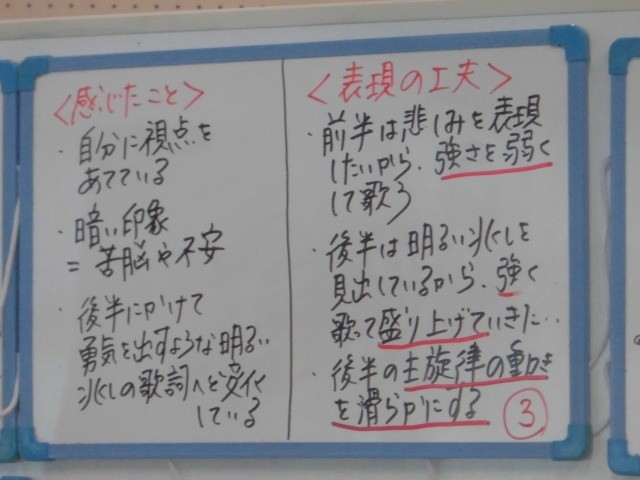 〈感じたこと〉
・自分に視点を
あてている
・暗い印象
＝苦脳や不安
・後半にかけて
勇気を出すような明るい
兆しの歌詞へと変化
している
〈表現の工夫〉
・前半は悲しみを表現
したいから、強さを弱く
して歌う
・後半は明るい兆しを
見出しているから、強く
歌って盛り上げていきた‥
・後半の主旋律の動きを
を滑らかにする
③